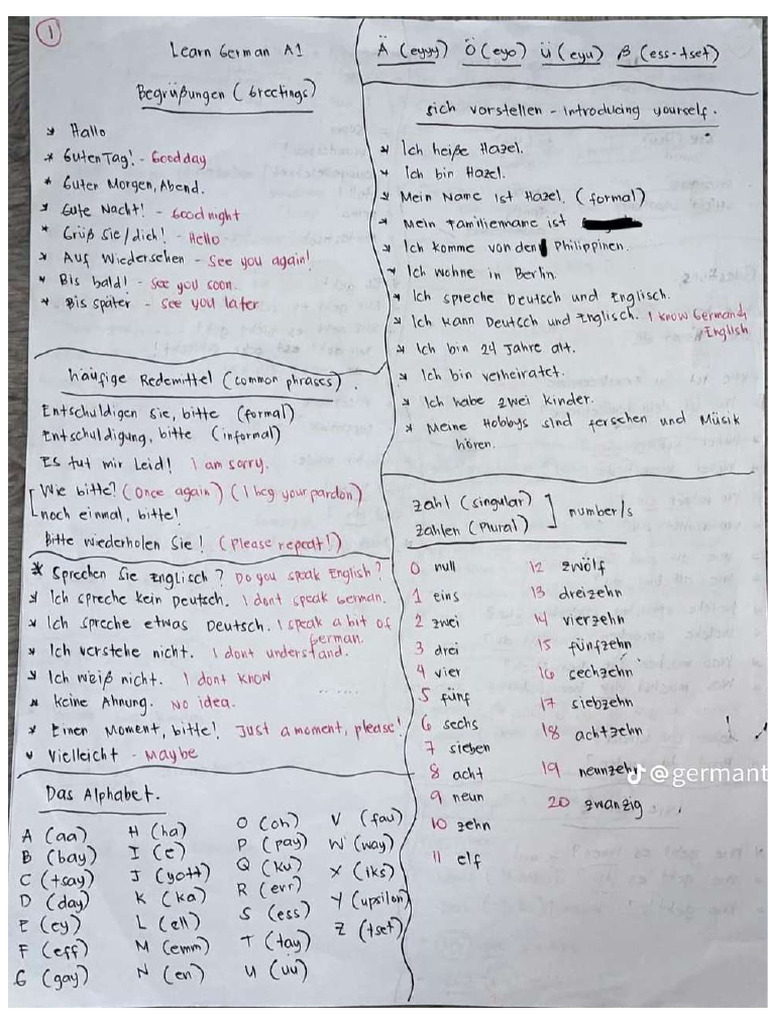 1
Learn German A1
Begrüßungen (Greetings)
* Hallo
* Guten Tag! - Good day
* Guten Morgen, Abend.
* Gute Nacht! - Good night
* Grüß Sie/dich! - Hello
* Auf Wiedersehen - See you again!
* Bis bald! - See you soon.
* Bis später - see you later
häufige Redemittel (common phrases).
Entschuldigen Sie, bitte (formal)
Entschuldigung, bitte (informal)
Es tut mir Leid! I am sorry.
Wie bitte? (Once again) (I beg your pardon)
noch einmal, bitte!
Bitte wiederholen Sie! (Please repeat!)
* Sprechen Sie Englisch? Do you speak English?
* Ich spreche kein Deutsch. I dont speak German.
* Ich spreche etwas Deutsch. I speak a bit of
German.
* Ich verstehe nicht. I dont understand.
* Ich weiß nicht. I dont know
* Keine Ahnung. No idea.
* Einen Moment, bitte! Just a moment, please!
* Vielleicht - Maybe
Das Alphabet.
A (aa)
B (bay)
C (tsay)
D (day)
E (ey)
F (eff)
G (gay)
H (ha)
I (e)
J (yott)
K (ka)
L (ell)
M (emm)
N (en)
O (oh)
P (pay)
Q (ku)
R (err)
S (ess)
T (tay)
U (uu)
V (fau)
W (way)
X (iks)
Y (upsilon)
Z (tset)
Ä (eyyy) Ö (eyo) Ü (eyu) β (ess-tset)
sich vorstellen - Introducing yourself.
* Ich heiße Hazel.
* Ich bin Hazel.
* Mein Name ist Hazel. (formal)
* Mein Familienname ist
* Ich komme von den Philippinen.
* Ich wohne in Berlin.
* Ich spreche Deutsch und Englisch.
* Ich kann Deutsch und Englisch. I know German &
English
* Ich bin 24 Jahre alt.
* Ich bin verheiratet.
* Ich habe zwei Kinder.
* Meine Hobbys sind fersehen und Müsik
hören.
Zahl (singular)
Zahlen (Plural) ] number/s
0 null
1 eins
2 zwei
3 drei
4 vier
5 fünf
6 sechs
7 sieben
8 acht
9 neun
10 zehn
11 elf
12 zwölf
13 dreizehn
14 vierzehn
15 fünfzehn
16 sechzehn
17 siebzehn
18 achtzehn
19 neunzehn
20 zwanzig
@germant